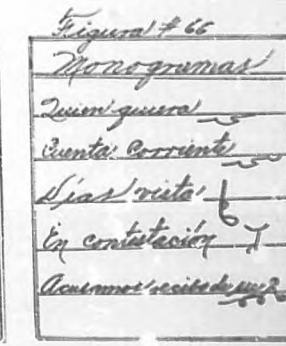 Figura # 66
Monogramas
Quien quiera
Cuenta Corriente
Días vista
En contestación
Acusamos recibo de su